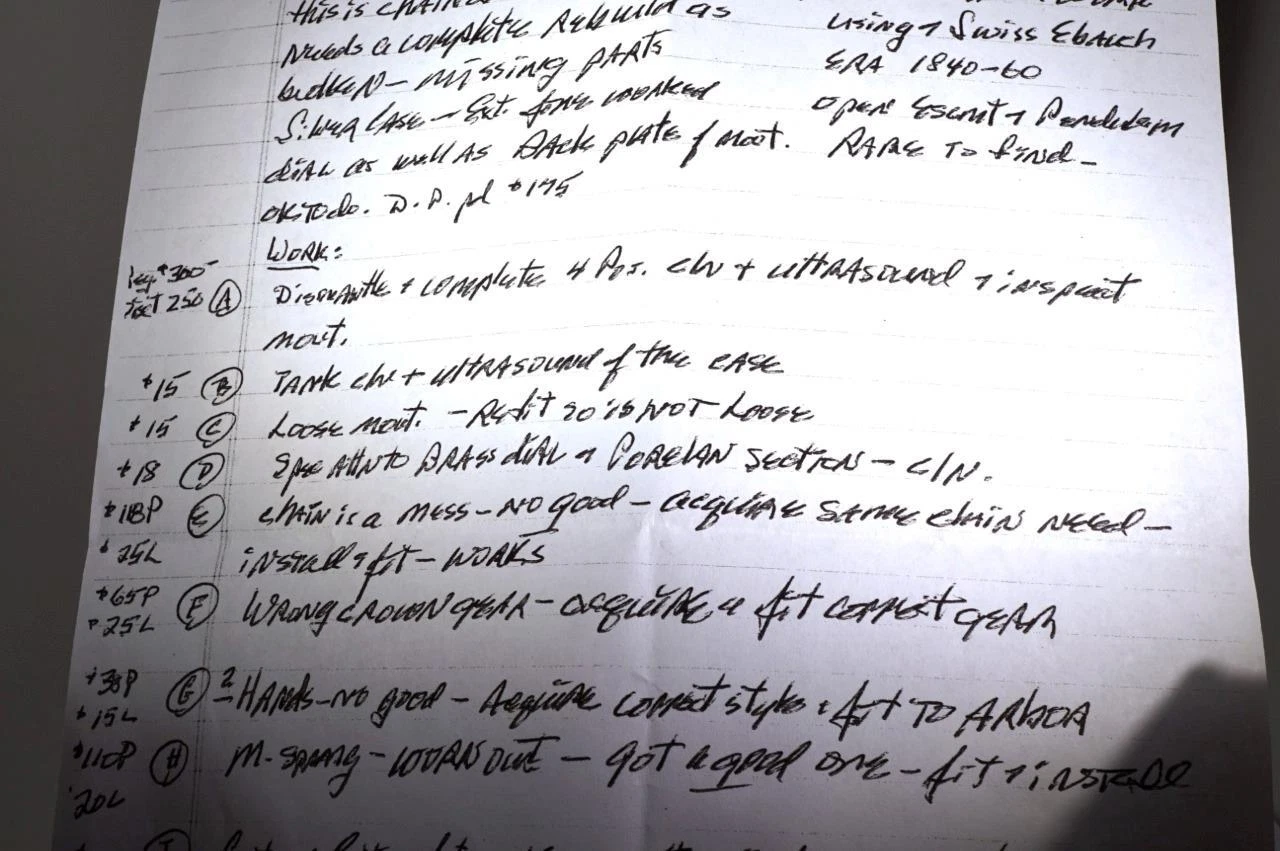 this is
Needs a complete Rebuild as
broken - missing PARTS
Silver CASE - Ext. fine worked
diAL as well AS BAck plate of movt.
ok to do. D.P. pd $175
using a Swiss Ebauch
ERA 1840-60
open Escmt & Pendulum
RARE To find -
WORK:
reg $300-
250 (A) Dismantle & complete 4 Pos. cln + ultRASOUND & inspect
movt.
$15 (B) TANK cln + ultRASOUND of the CASE
$15 (C) Loose movt. - Refit so is NOT Loose
$18 (D) Spec Attn to BRASS diAL & PORCLAN SECTION - C/N.
$118P (E) CHAIN is a MESS - NO good - acquire SAME CHAIN NEED -
$25L iNSTAll & fit - WORKS
$65P (F) WRONG CROWN GEAR - acquire & fit correct GEAR
$25L
$38P (G) 2 - HANDS - NO good - Acquire correct style & fit TO ARBOR
$15L
$110P (H) M. SPRING - WORN OUT - got a good one - fit & iNSTALL
20L